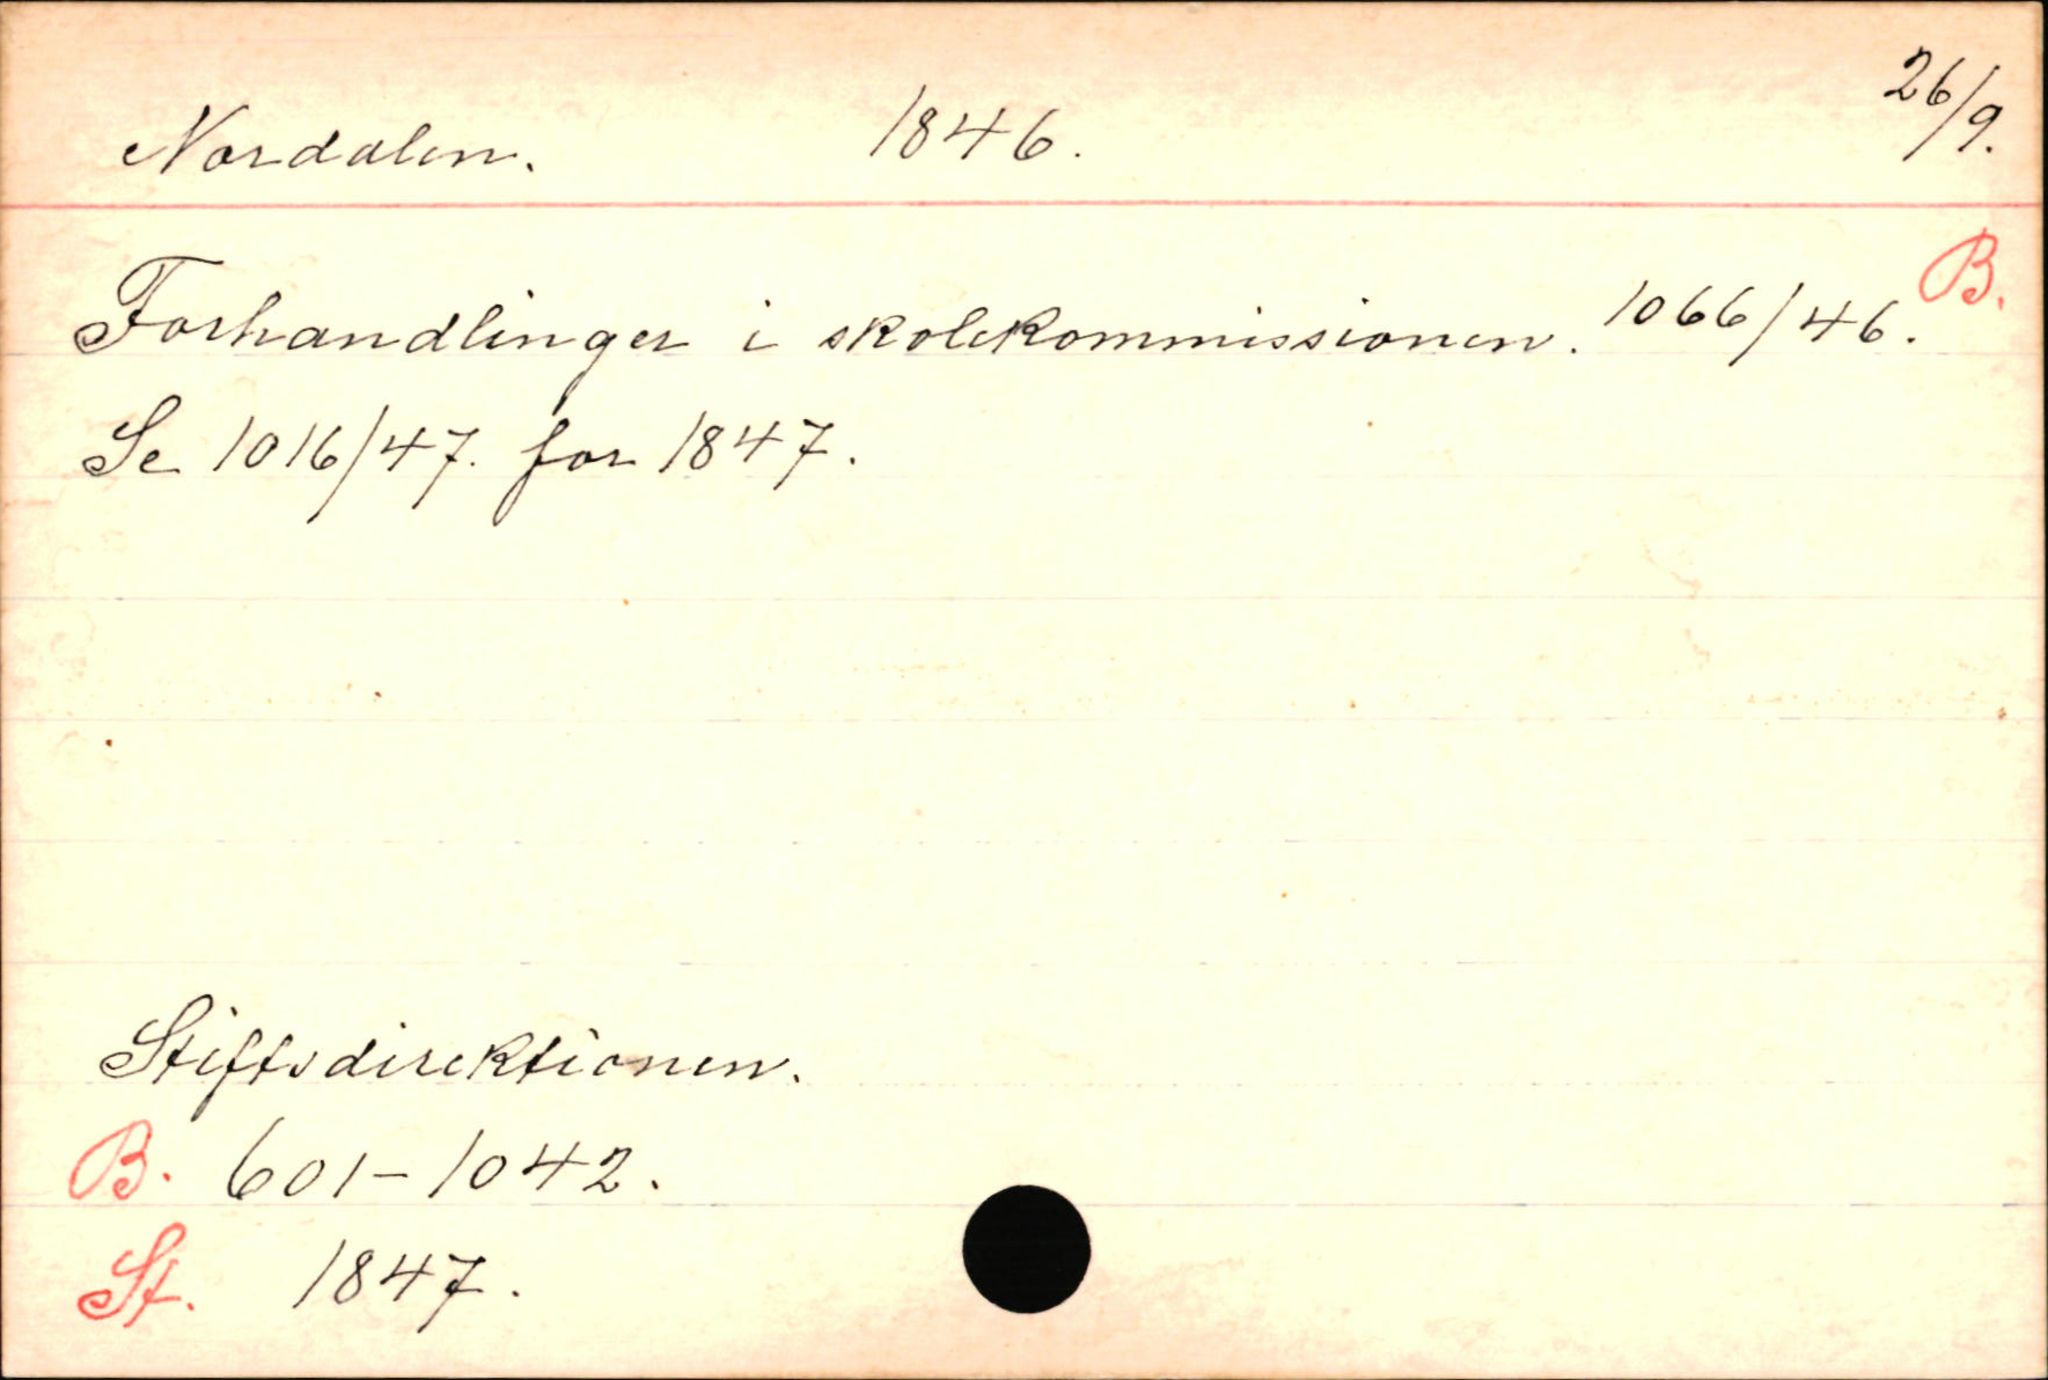 Nordalen. 1846. 26/9.
Forhandlinger i skolekommissionen. 1066/46. B.
Se 1016/47. for 1847.
Stiftsdirektionen.
B. 601-1042.
St. 1847.